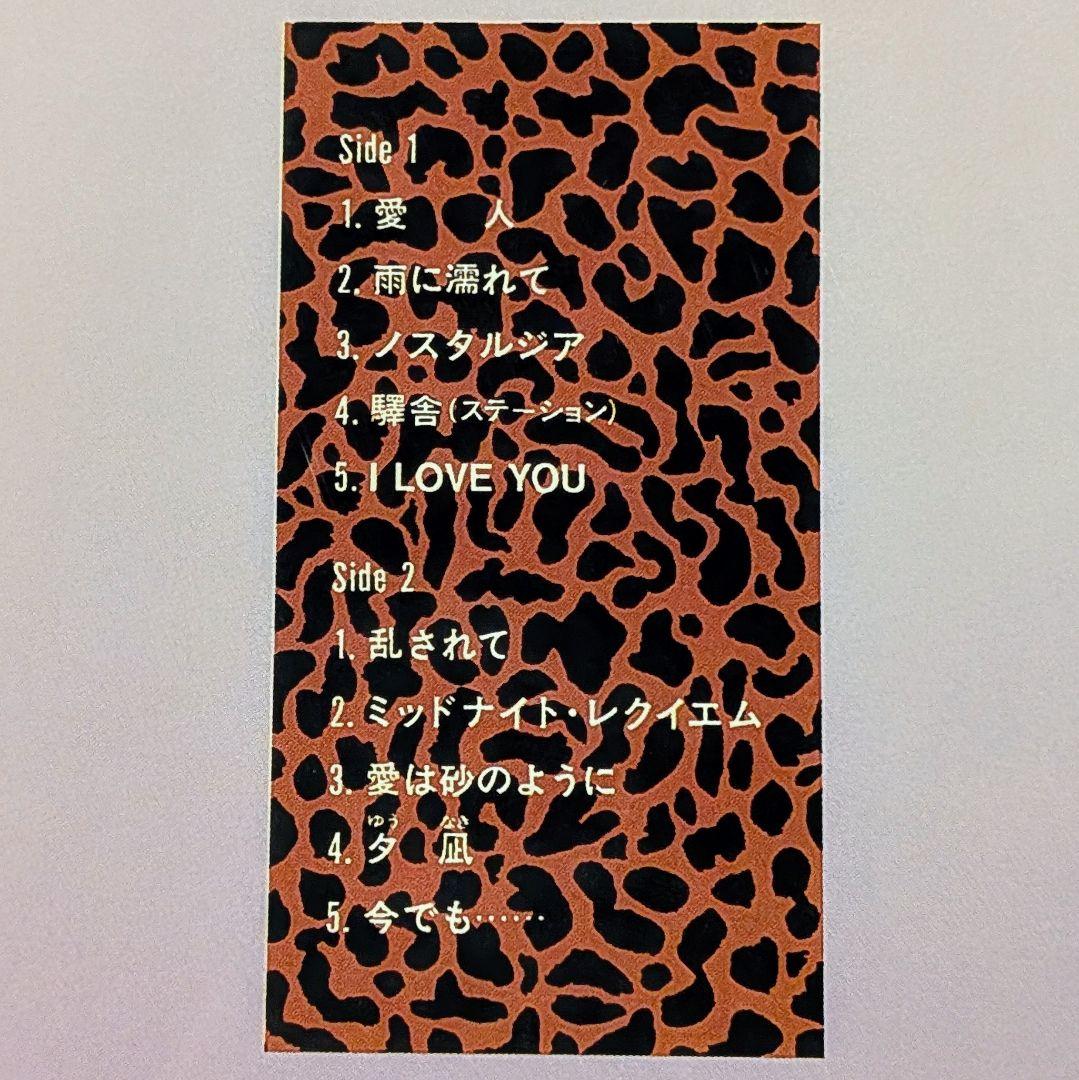 Side 1
1. 愛　人
2. 雨に濡れて
3. ノスタルジア
4. 驛舎(ステーション)
5. I LOVE YOU
Side 2
1. 乱されて
2. ミッドナイト・レクイエム
3. 愛は砂のように
ゆう　なぎ
4. 夕　凪
5. 今でも……